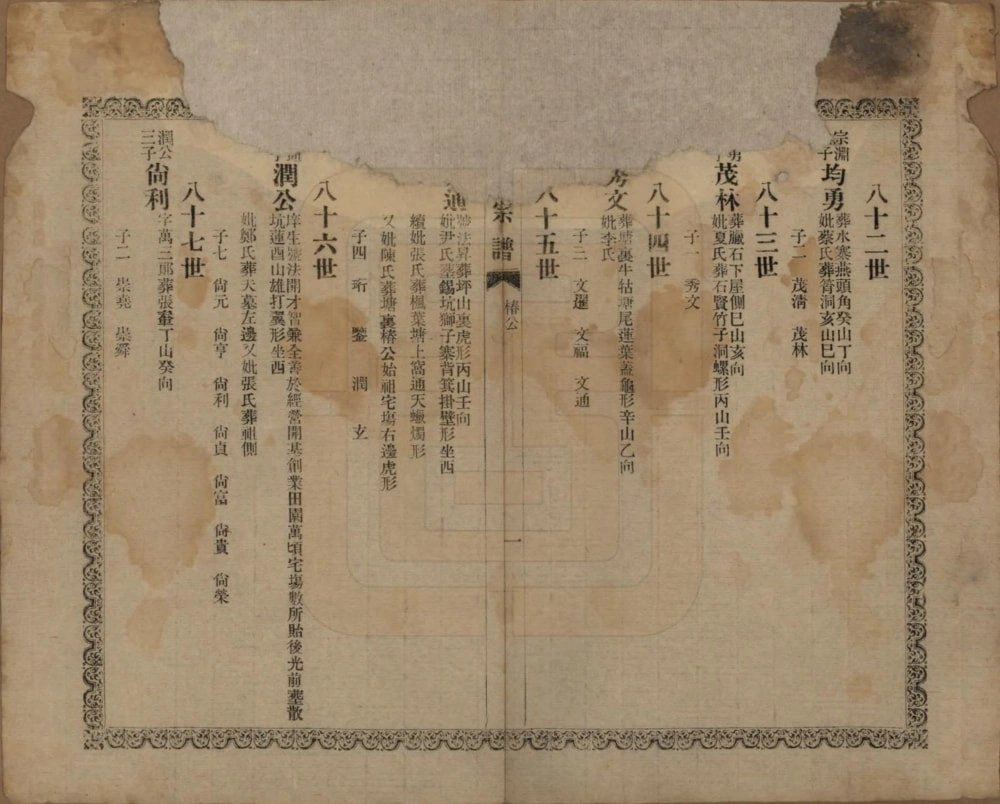 八十二世
宗淵子均勇 葬水寨燕頭角癸山丁向
妣蔡氏葬筲洞亥山巳向
子二 茂清 茂林
八十三世
勇子茂林 葬臘石下屋側巳山亥向
妣夏氏葬石賢竹子洞螺形丙山壬向
子一 秀文
八十四世
秀文 葬塘裏牛牯塘尾蓮葉蓋龜形辛山乙向
妣李氏
子三 文暹 文福 文通
八十五世
崇譜
椿公
一
通 號法昇葬坪山裏虎形丙山壬向
妣尹氏墓錫坑獅子寨背箕掛壁形坐西
續妣張氏葬楓葉塘上窩通天蠟燭形
又妣陳氏葬塘裏椿公始祖宅塲右邊虎形
子四 珩 鑒 潤 玄
八十六世
潤公 庠生號法開才智兼全善於經營開基創業田園萬頃宅塲數所貽後光前塟散
坑蓮酉山雄打翼形坐西
妣鄭氏葬天墓左邊又妣張氏葬祖側
子七 尙元 尙亨 尙利 尙貞 尙富 尙貴 尙榮
八十七世
潤公三子尙利 字萬三郎葬張輋丁山癸向
子二 崇堯 崇舜